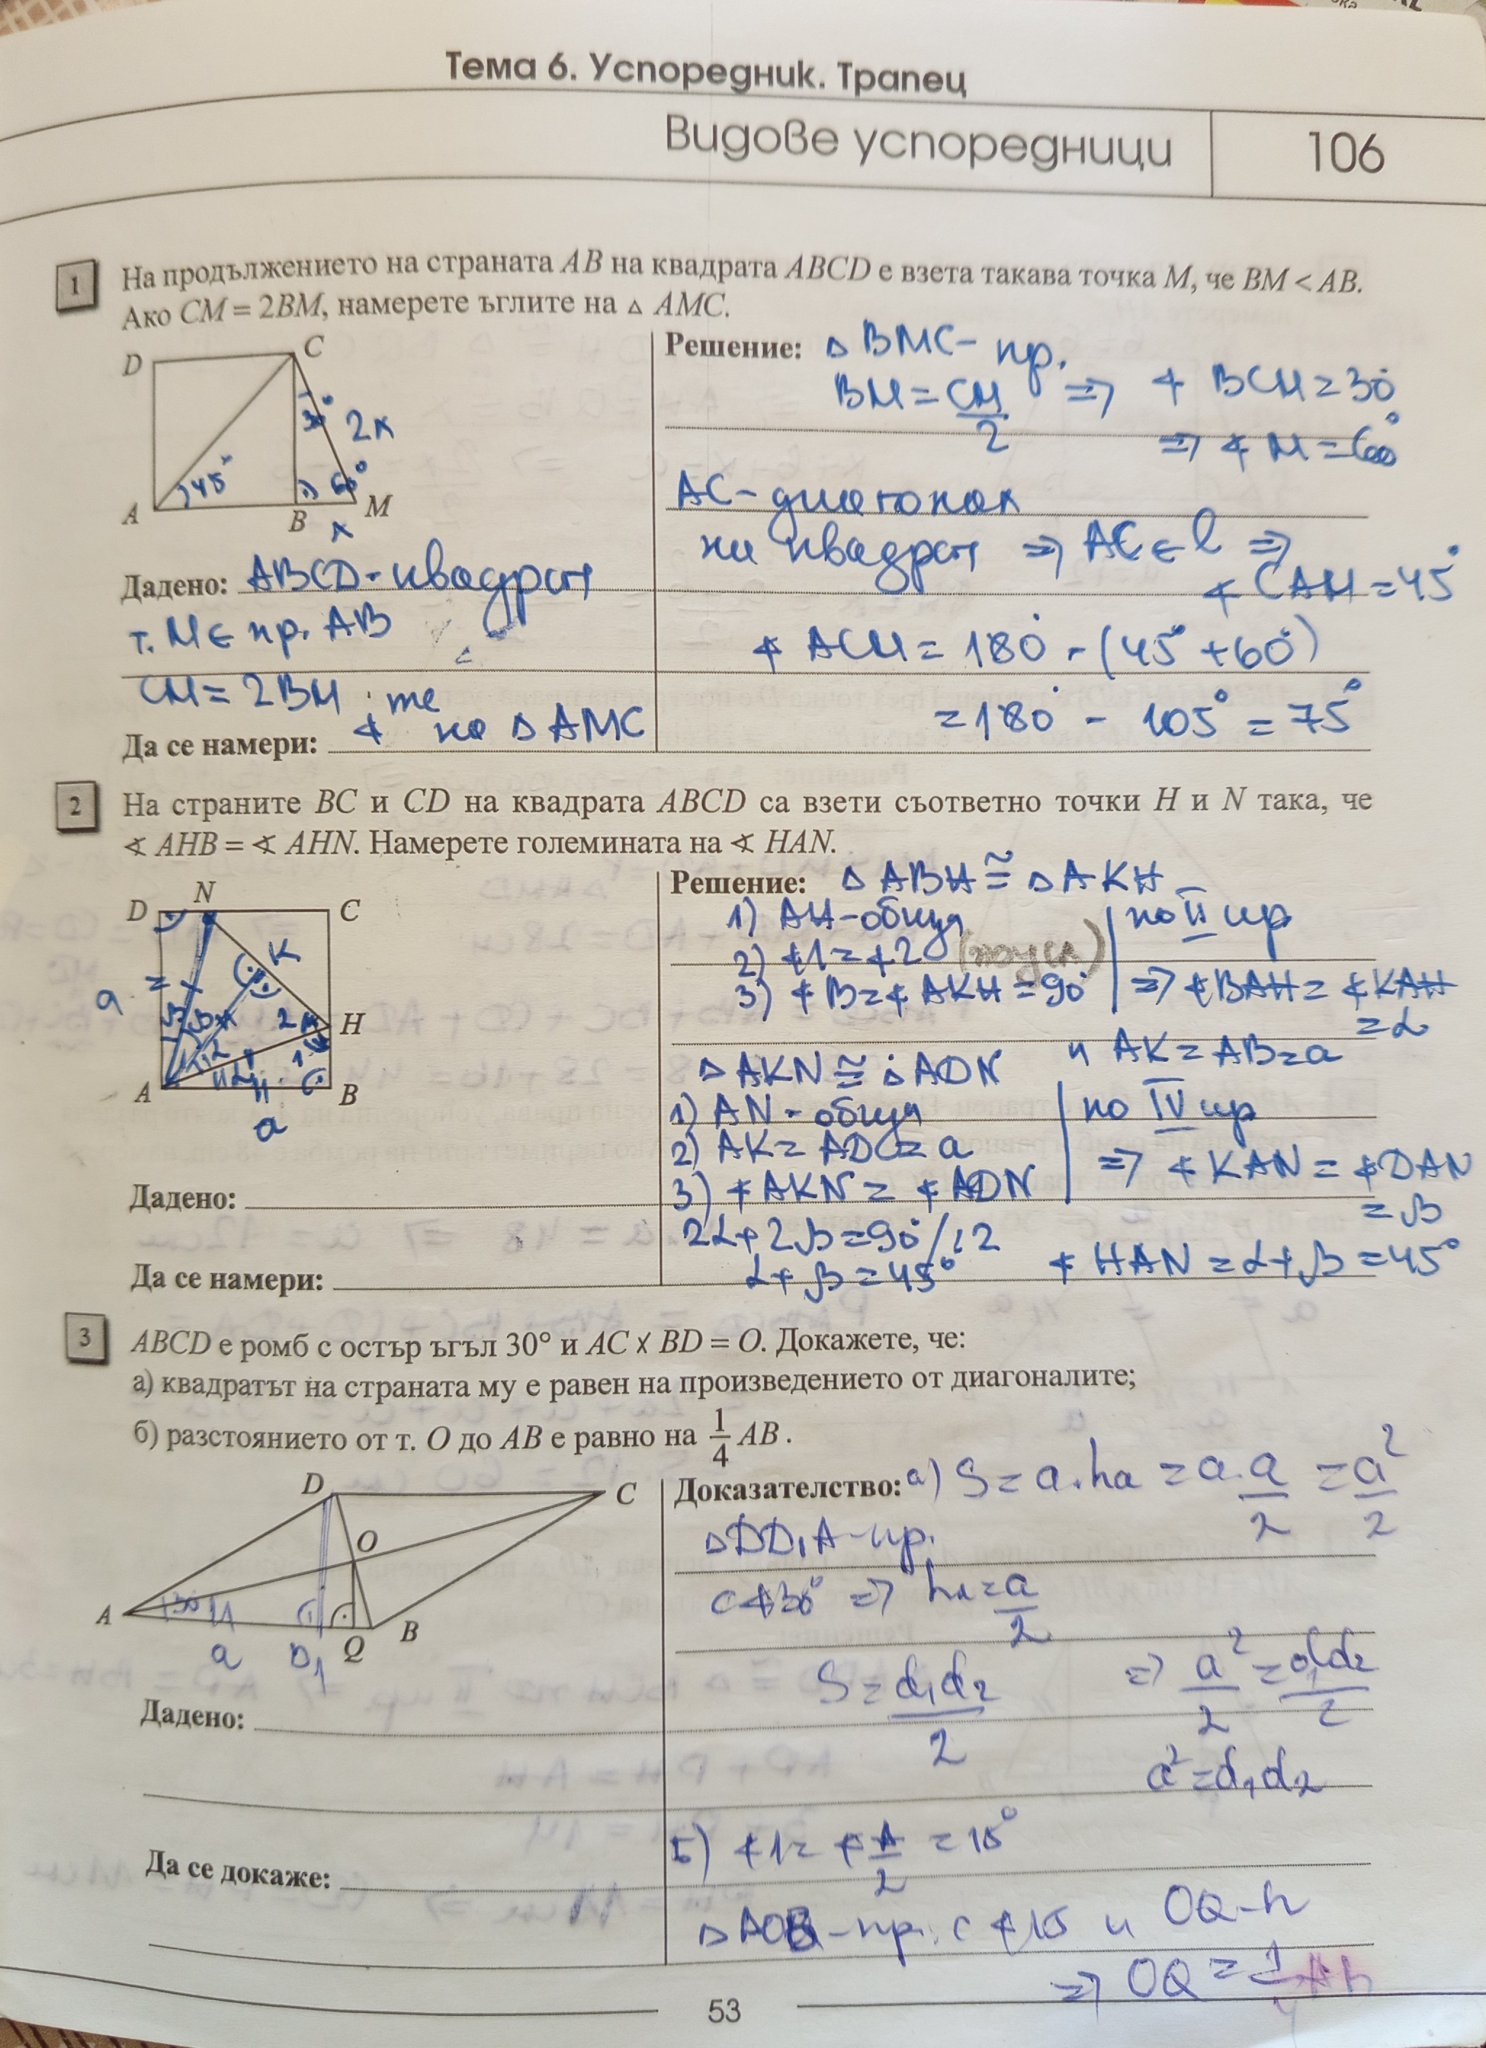 Тема 6. Успоредник. Трапец
Видове успоредници
106
1
На продължението на страната AB на квадрата ABCD е взета такава точка M, че BM < AB.
Ако CM = 2BM, намерете ъглите на △ AMC.
D
C
30°
2x
45°
60°
A
B
M
x
Решение: △ BMC - пр.
BM = CM/2 => ∢ BCM = 30°
=> ∢ M = 60°
AC - диагонал
на квадрат => AC ∈ l =>
∢ CAM = 45°
∢ ACM = 180° - (45° + 60°)
= 180° - 105° = 75°
Дадено: ABCD - квадрат
т. M ∈ пр. AB
CM = 2BM
Да се намери: ∢ те на △ AMC
2
На страните BC и CD на квадрата ABCD са взети съответно точки H и N така, че
∢ AHB = ∢ AHN. Намерете големината на ∢ HAN.
D
N
C
K
a
2
H
1
A
B
a
Решение: △ ABH ≅ △ AKH
1) AH - обща | по II пр
2) ∢1 = ∢2 (по усл)
3) ∢ B = ∢ AKH = 90° | => ∢ BAH = ∢ KAH
= α
и AK = AB = a
△ AKN ≅ △ ADN
1) AN - обща | по IV пр
2) AK = AD = a
3) ∢ AKN = ∢ ADN | => ∢ KAN = ∢ DAN
= β
2α + 2β = 90° /:2
α + β = 45°
∢ HAN = α + β = 45°
Дадено:
Да се намери:
3
ABCD е ромб с остър ъгъл 30° и AC X BD = O. Докажете, че:
а) квадратът на страната му е равен на произведението от диагоналите;
б) разстоянието от т. O до AB е равно на 1/4 AB .
D
C
O
A
30
1
a
D1
Q
B
Доказателство: а) S = a.ha = a.a/2 = a²/2
△ DD₁A - пр.
с ∢ 30° => ha = a/2
S = d₁d₂/2 => a²/2 = d₁d₂/2
a² = d₁d₂
Б) ∢1 = ∢A/2 = 15°
△ AOB - пр. с ∢ 15 и OQ - h
=> OQ = 1/4 AB
Дадено:
Да се докаже:
53